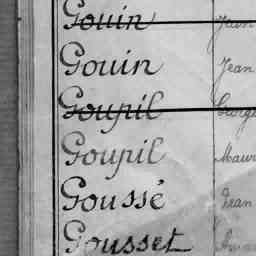 Gouin Jean
Gouin Jean
Goupil George
Goupil Maur
Goussé Jean
Gousset